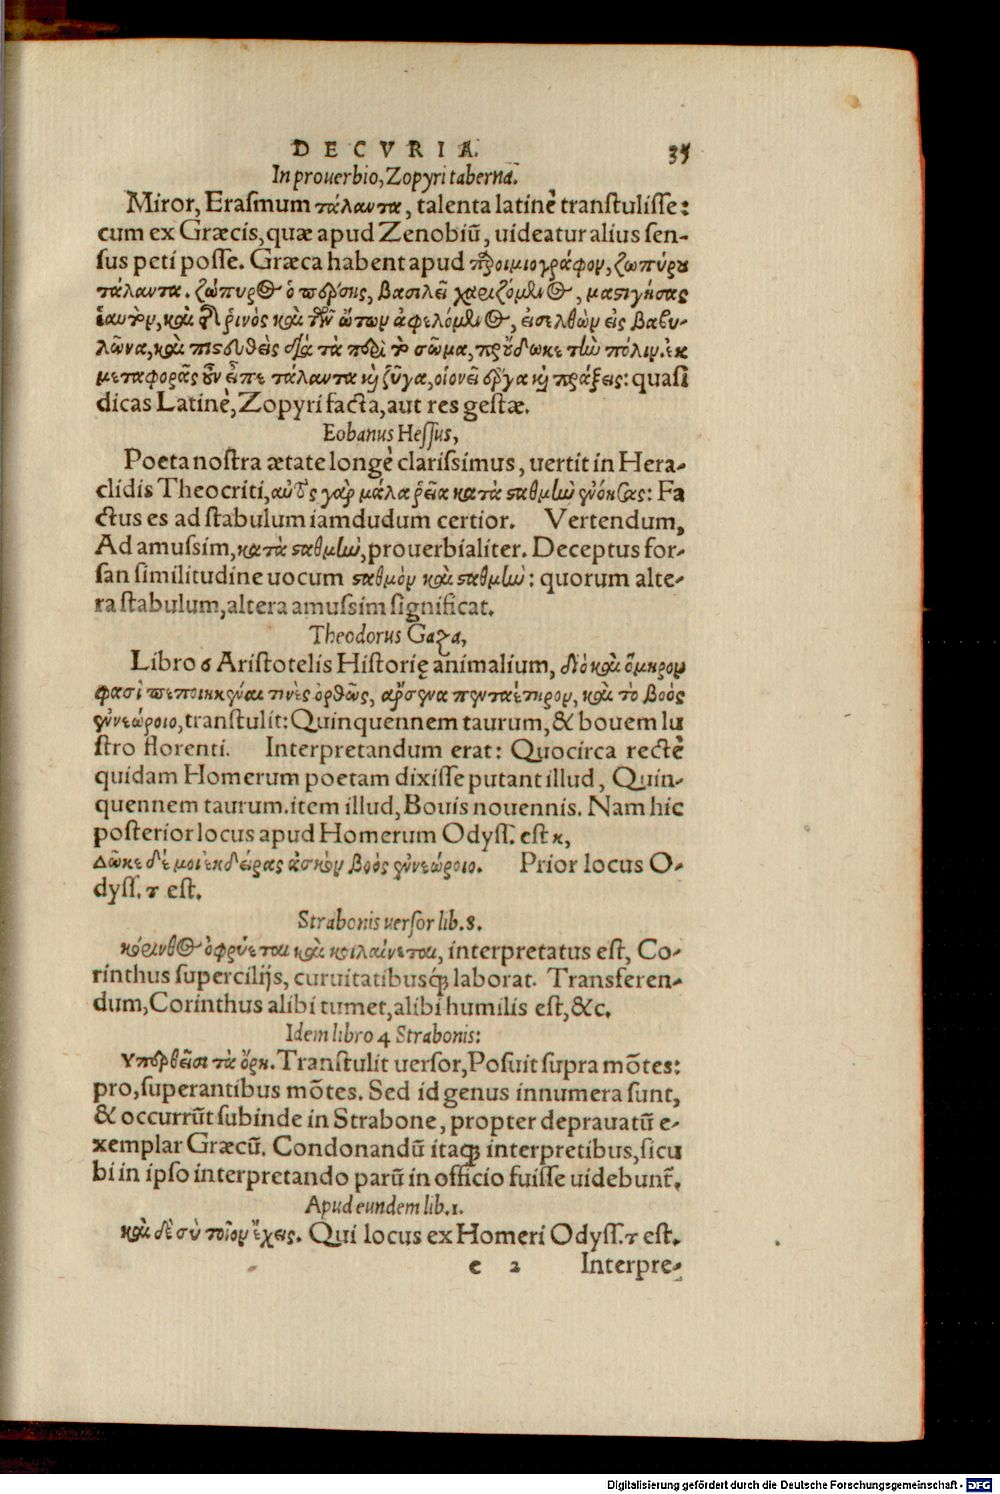 DECVRIA. 35
In prouerbio, Zopyri taberna.
Miror, Erasmum τάλαντα, talenta latinè transtulisse:
cum ex Græcis, quæ apud Zenobiũ, uideatur alius sen-
sus peti posse. Græca habent apud προιμιογράφον, ζωπύρου
τάλαντα. ζώπυρος ὁ πέρσης, βασιλεῖ χαριζόμενος, μαστιγήσας
ἑαυτὸν, καὶ ῥινὸς καὶ τῶν ὤτων ἀφελόμενος, εἰσελθὼν εἰς βαβυ-
λῶνα, καὶ πιστευθεὶς διὰ τὰ περὶ τὸ σῶμα, προύδωκε τὴν πόλιν. ἐκ
μεταφορᾶς οὖν εἶπε τάλαντα καὶ ζῦγα, οἱονεῖ ἔργα καὶ πράξεις: quasi
dicas Latinè, Zopyri facta, aut res gestæ.
Eobanus Hessus,
Poeta nostra ætate longè clarissimus, uertit in Hera-
clidis Theocriti, αὐτὸς γὰρ μάλα ῥεῖα κατὰ σταθμὴν: Fa
ctus es ad stabulum iamdudum certior. Vertendum,
Ad amussim, κατὰ σταθμὴν, prouerbialiter. Deceptus for-
san similitudine uocum σταθμὸν καὶ σταθμὴν: quorum alte-
ra stabulum, altera amussim significat.
Theodorus Gaza,
Libro 6 Aristotelis Historię animalium, διὸ καὶ ὅμηρον
φασὶ πεποιηκέναι τινὲς ὀρθῶς, ἄρσενα πενταέτηρον, καὶ τὸ βοὸς
ἐννεώροιο, transtulit: Quinquennem taurum, & bouem lu
stro florenti. Interpretandum erat: Quocirca rectè
quidam Homerum poetam dixisse putant illud, Quin-
quennem taurum. item illud, Bouis nouennis. Nam hic
posterior locus apud Homerum Odyss. est κ,
Δῶκε δέ μοι ἐκδείρας ἀσκὸν βοὸς ἐννεώροιο. Prior locus O-
dyss. τ est.
Strabonis uersor lib. 8.
κόρινθος ὀφρύεται καὶ κοιλαίνεται, interpretatus est, Co-
rinthus supercilijs, curuitatibusq; laborat. Transferen-
dum, Corinthus alibi tumet, alibi humilis est, &c.
Idem libro 4 Strabonis:
Υπερθεῖσι τὰ ὄρη. Transtulit uersor, Posuit supra mõtes:
pro, superantibus mõtes. Sed id genus innumera sunt,
& occurrũt subinde in Strabone, propter deprauatũ e-
xemplar Græcũ. Condonandũ itaq; interpretibus, sicu
bi in ipso interpretando parũ in officio fuisse uidebunt̃.
Apud eundem lib. 1.
καὶ δὲ σὺ ποῖον ἔχεις. Qui locus ex Homeri Odyss. τ est.
e 2 Interpre-
Digitalisierung gefördert durch die Deutsche Forschungsgemeinschaft - DFG